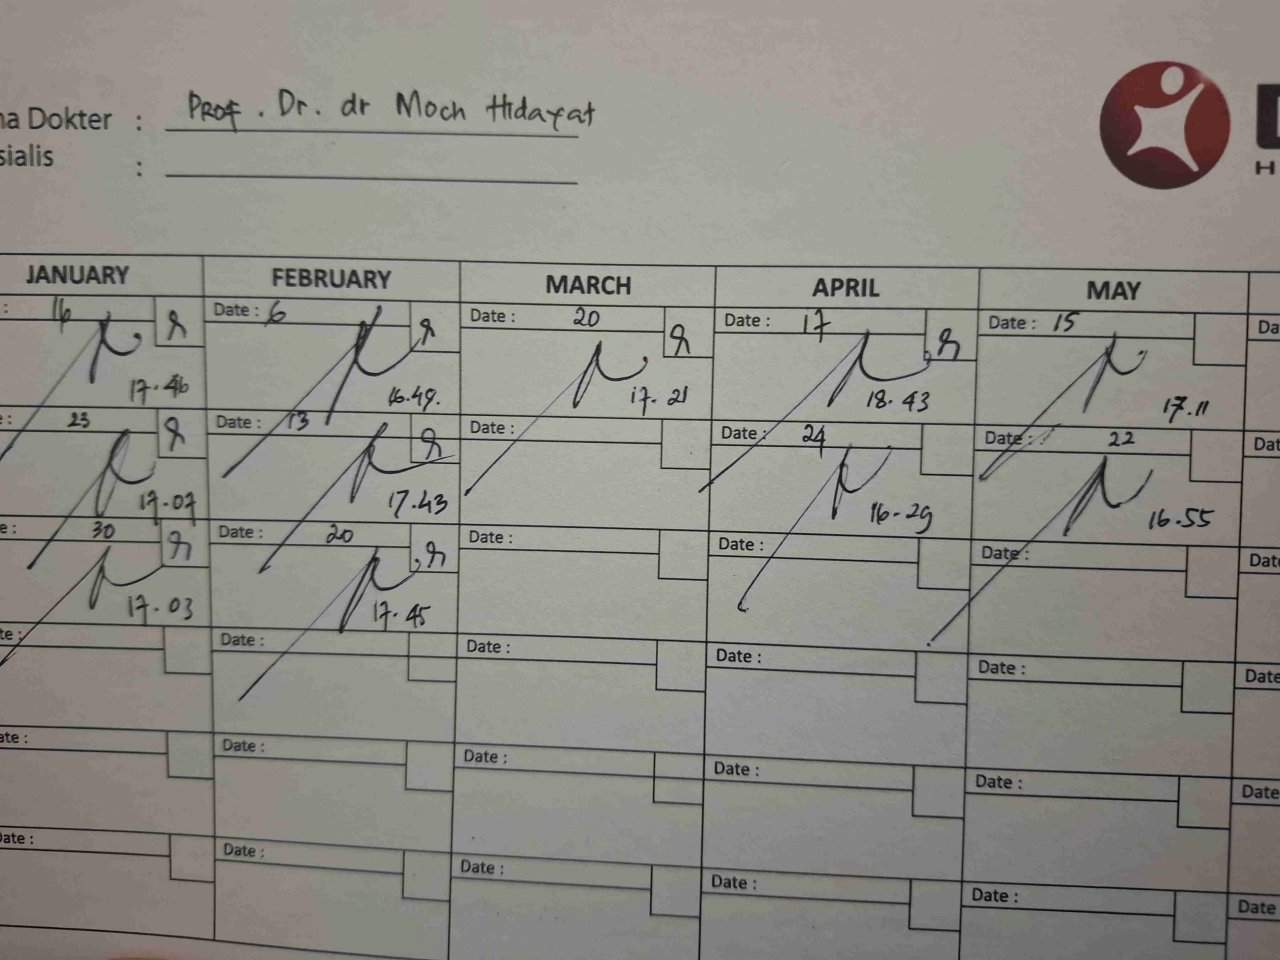 na Dokter : Prof. Dr. dr Moch Hidayat
sialis :
H
JANUARY FEBRUARY MARCH APRIL MAY
: 16 Date : 6 Date : 20 Date : 17 Date : 15 Da
17.46 16.49. 17.21 18.43 17.11
e : 23 Date : 13 Date : Date : 24 Date : 22 Dat
17.07 17.43 16-29 16.55
e : 30 Date : 20 Date : Date : Date : Date
17.03 17.45
te : Date : Date : Date : Date : Date
ate : Date : Date : Date : Date : Date
Date : Date : Date : Date : Date : Date